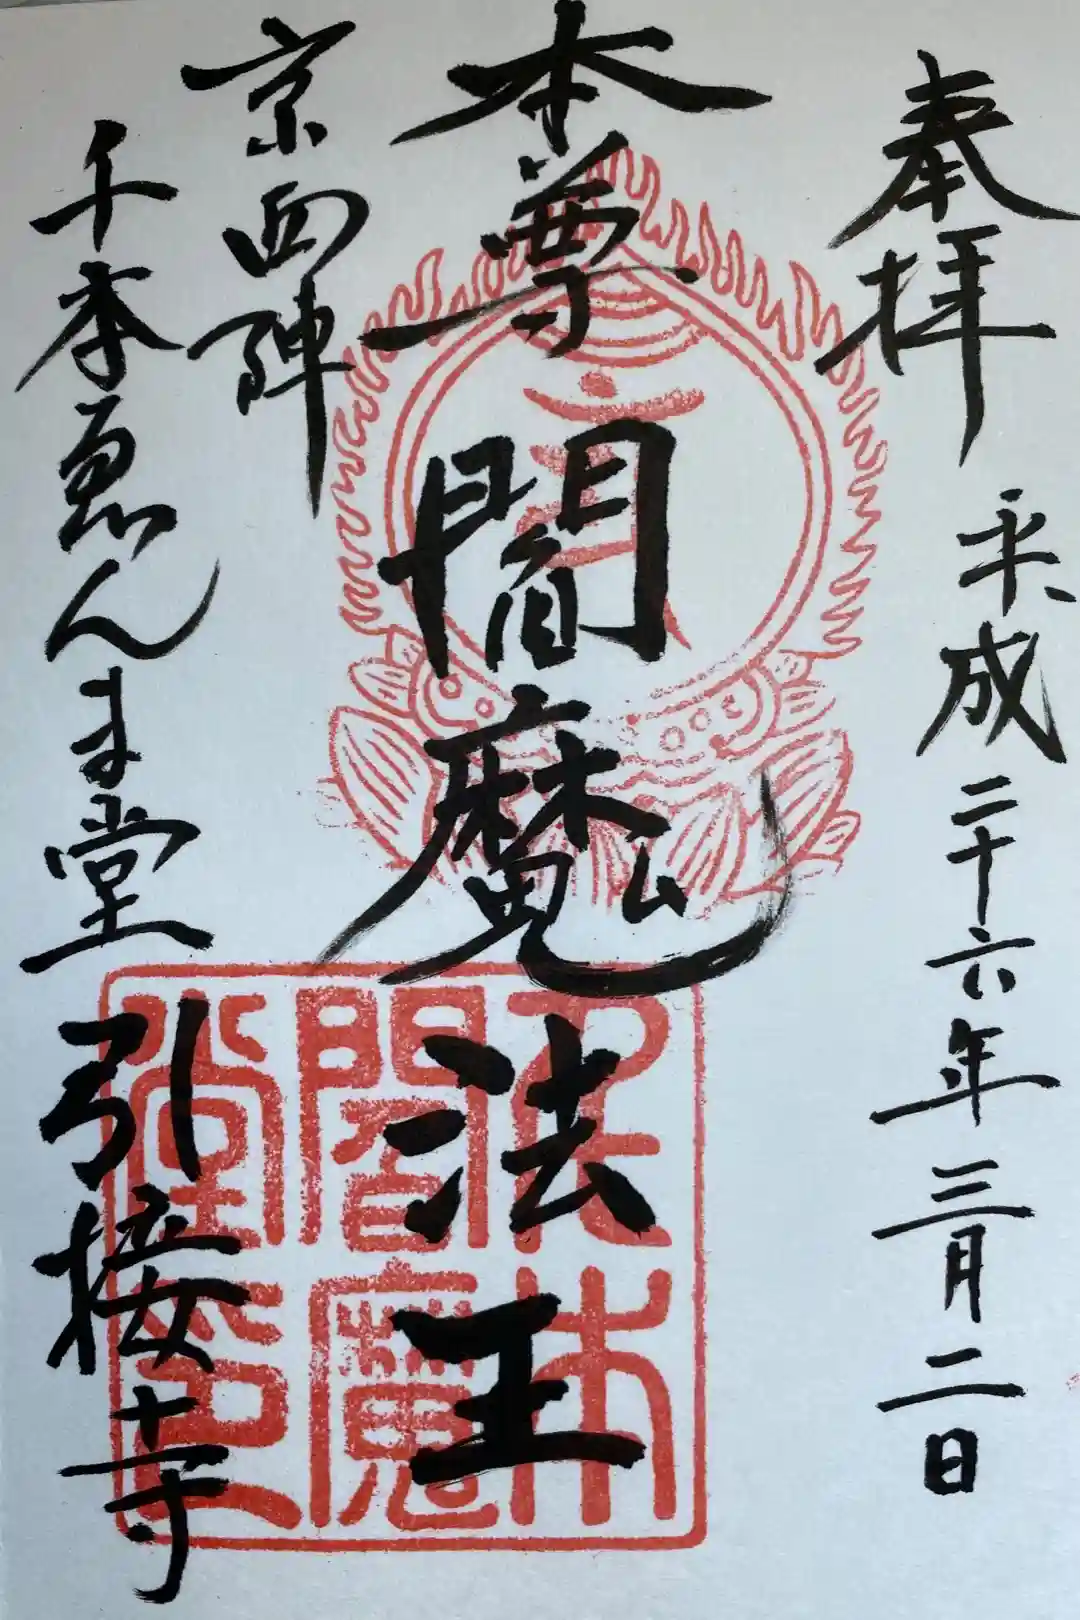 奉拝
平成二十六年三月二日
本尊
閻魔法王
京西陣
千本ゑんま堂
引接寺
千本
閻魔
堂印